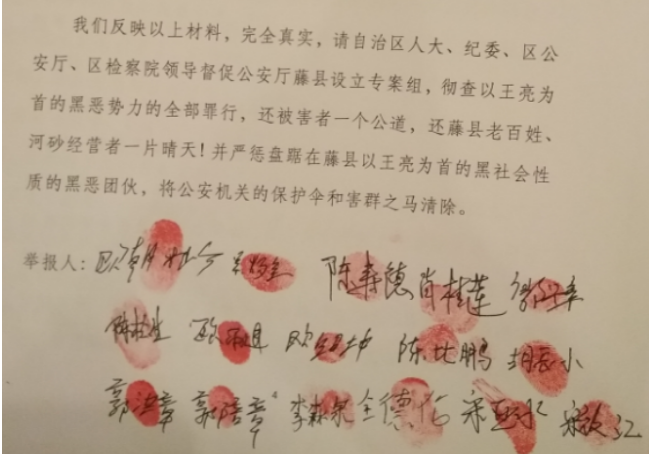 我们反映以上材料，完全真实，请自治区人大、纪委、区公
安厅、区检察院领导督促公安厅藤县设立专案组，彻查以王亮为
首的黑恶势力的全部罪行，还被害者一个公道，还藤县老百姓、
河砂经营者一片晴天！并严惩盘踞在藤县以王亮为首的黑社会性
质的黑恶团伙，将公安机关的保护伞和害群之马清除。
举报人： 陈寿德 肖桂莲
陈比鹏
郭洪章 郭培章 李森荣